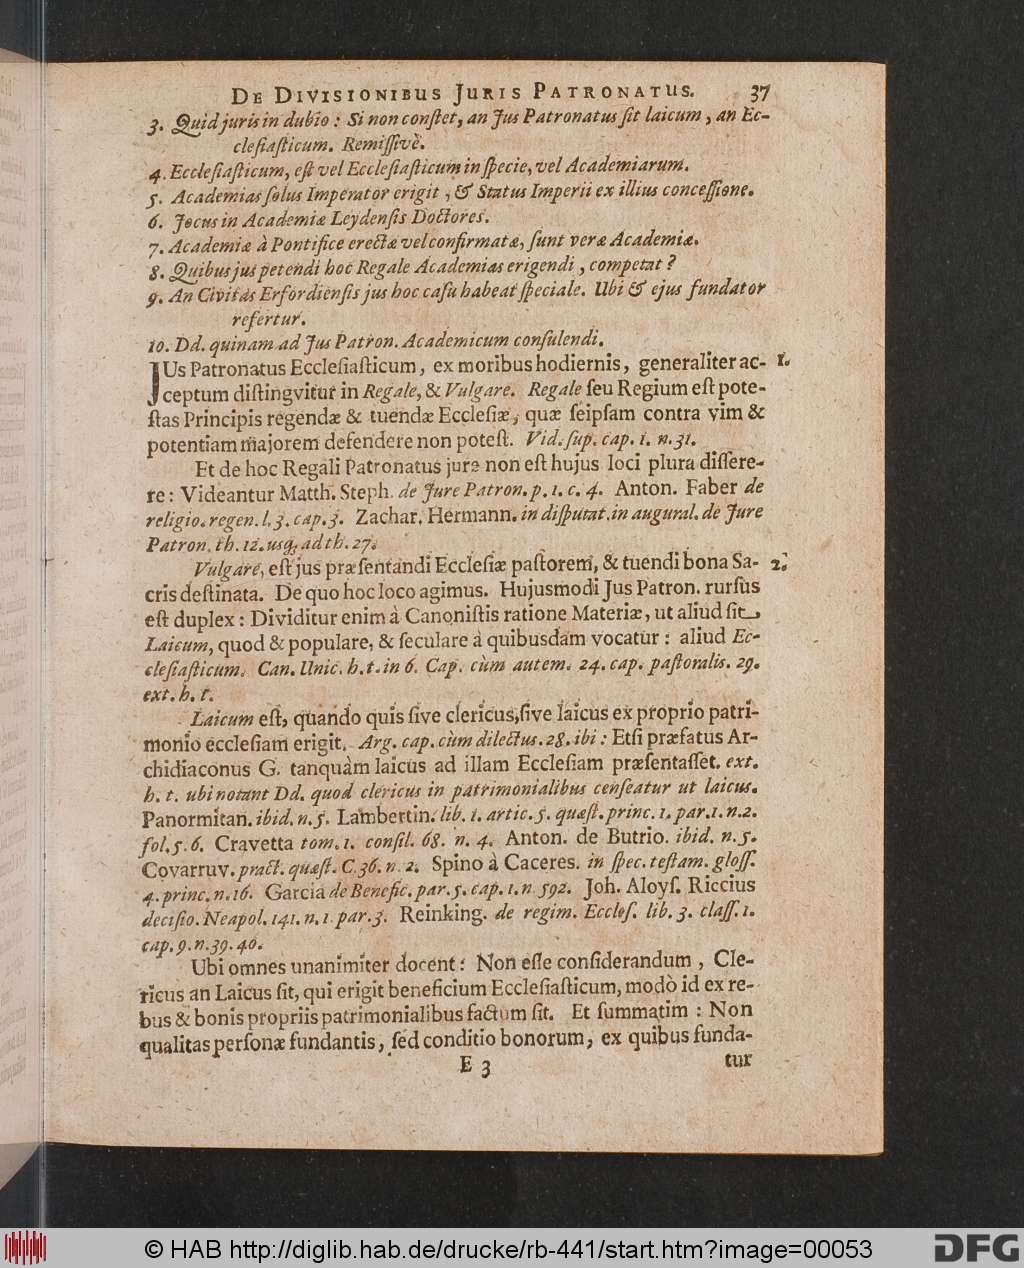 De Divisionibus Juris Patronatus. 37
3. Quid juris in dubio: Si non conſtet, an Jus Patronatus ſit laicum, an Ec-
cleſiaſticum. Remiſſivè.
4. Eccleſiaſticum, eſt vel Eccleſiaſticum in ſpecie, vel Academiarum.
5. Academias ſolus Imperator erigit, & Status Imperii ex illius conceſſione.
6. Jocus in Academiæ Leydenſis Doctores.
7. Academiæ à Pontifice erectæ vel confirmatæ, ſunt veræ Academiæ.
8. Quibus jus petendi hoc Regale Academias erigendi, competat?
9. An Civitas Erfordienſis jus hoc caſu habeat ſpeciale. Ubi & ejus fundator
refertur.
10. Dd. quinam ad Jus Patron. Academicum conſulendi.
JUs Patronatus Eccleſiaſticum, ex moribus hodiernis, generaliter ac- 1.
ceptum diſtingvitur in Regale, & Vulgare. Regale ſeu Regium eſt pote-
ſtas Principis regendæ & tuendæ Eccleſiæ, quæ ſeipſam contra vim &
potentiam majorem defendere non poteſt. Vid. ſup. cap. 1. n. 31.
Et de hoc Regali Patronatus jure non eſt hujus loci plura diſſere-
re: Videantur Matth. Steph. de Jure Patron. p. 1. c. 4. Anton. Faber de
religio. regen. l. 3. cap. 3. Zachar. Hermann. in diſputat. in augural. de Jure
Patron. th. 12. usq; ad th. 27.
Vulgare, eſt jus præſentandi Eccleſiæ paſtorem, & tuendi bona Sa- 2.
cris deſtinata. De quo hoc loco agimus. Hujusmodi Jus Patron. rurſùs
eſt duplex: Dividitur enim à Canoniſtis ratione Materiæ, ut aliud ſit
Laicum, quod & populare, & ſeculare à quibusdam vocatur: aliud Ec-
cleſiaſticum. Can. Unic. h. t. in 6. Cap. cùm autem. 24. cap. paſtoralis. 29.
ext. h. t.
Laicum eſt, quando quis ſive clericus, ſive laicus ex proprio patri-
monio eccleſiam erigit. Arg. cap. cùm dilectus. 28. ibi: Etſi præfatus Ar-
chidiaconus G. tanquàm laicus ad illam Eccleſiam præſentaſſet. ext.
h. t. ubi notant Dd. quod clericus in patrimonialibus cenſeatur ut laicus.
Panormitan. ibid. n. 5. Lambertin. lib. 1. artic. 5. quæſt. princ. 1. par. 1. n. 2.
fol. 5. 6. Cravetta tom. 1. conſil. 68. n. 4. Anton. de Butrio. ibid. n. 5.
Covarruv. pract. quæſt. C. 36. n. 2. Spino à Caceres. in ſpec. teſtam. gloſſ.
4. princ. n. 16. Garcia de Benefic. par. 5. cap. 1. n. 592. Joh. Aloyſ. Riccius
deciſio. Neapol. 141. n. 1. par. 3. Reinking. de regim. Eccleſ. lib. 3. claſſ. 1.
cap. 9. n. 39. 40.
Ubi omnes unanimiter docent: Non eſſe conſiderandum, Cle-
ricus an Laicus ſit, qui erigit beneficium Eccleſiaſticum, modò id ex re-
bus & bonis propriis patrimonialibus factum ſit. Et ſummatim: Non
qualitas perſonæ fundantis, ſed conditio bonorum, ex quibus funda-
E 3 tur
© HAB http://diglib.hab.de/drucke/rb-441/start.htm?image=00053 DFG